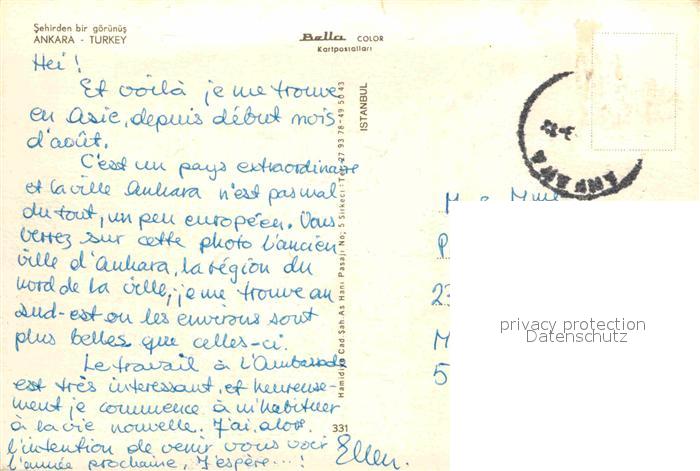 Şehirden bir görünüş
ANKARA - TURKEY
Bella COLOR
Kartpostalları
Hei!
Et voilà je me trouve
en Asie, depuis début mois
d'août.
C'est un pays extraordinaire
et la ville Ankara n'est pas mal
du tout, un peu européen. Vous
verrez sur cette photo l'ancien
ville d'Ankara, la région du
nord de la ville, je me trouve au
sud-est ou les environs sont
plus belles que celles-ci.
Le travail à l'Ambassade
est très interessant, et heureuse-
ment je commence à m'habituer
à la vie nouvelle. J'ai, alors
l'intention de venir vous voir
l'année prochaine, j'espère...!
Ellen.
Hamidiye Cad. Şah. As Hanı Pasajı No; 5 Sirkeci: Tel: 27 93 78 - 49 56 43
ISTANBUL
331
ANKARA
M. & Mme
P
23
M
5
privacy protection
Datenschutz